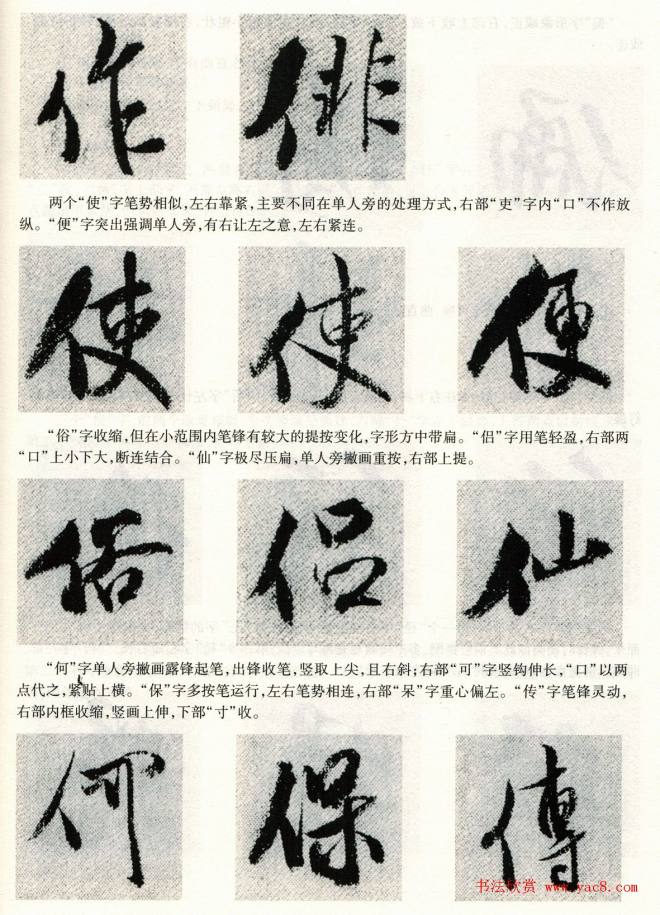 作 俳
两个“使”字笔势相似,左右靠紧,主要不同在单人旁的处理方式,右部“吏”字内“口”不作放
纵。“便”字突出强调单人旁,有右让左之意,左右紧连。
使 使 便
“俗”字收缩,但在小范围内笔锋有较大的提按变化,字形方中带扁。“侣”字用笔轻盈,右部两
“口”上小下大,断连结合。“仙”字极尽压扁,单人旁撇画重按,右部上提。
俗 侣 仙
“何”字单人旁撇画露锋起笔,出锋收笔,竖取上尖,且右斜;右部“可”字竖钩伸长,“口”以两
点代之,紧贴上横。“保”字多按笔运行,左右笔势相连,右部“呆”字重心偏左。“传”字笔锋灵动,
右部内框收缩,竖画上伸,下部“寸”收。
何 保 傳
书法欣赏 www.yac8.com